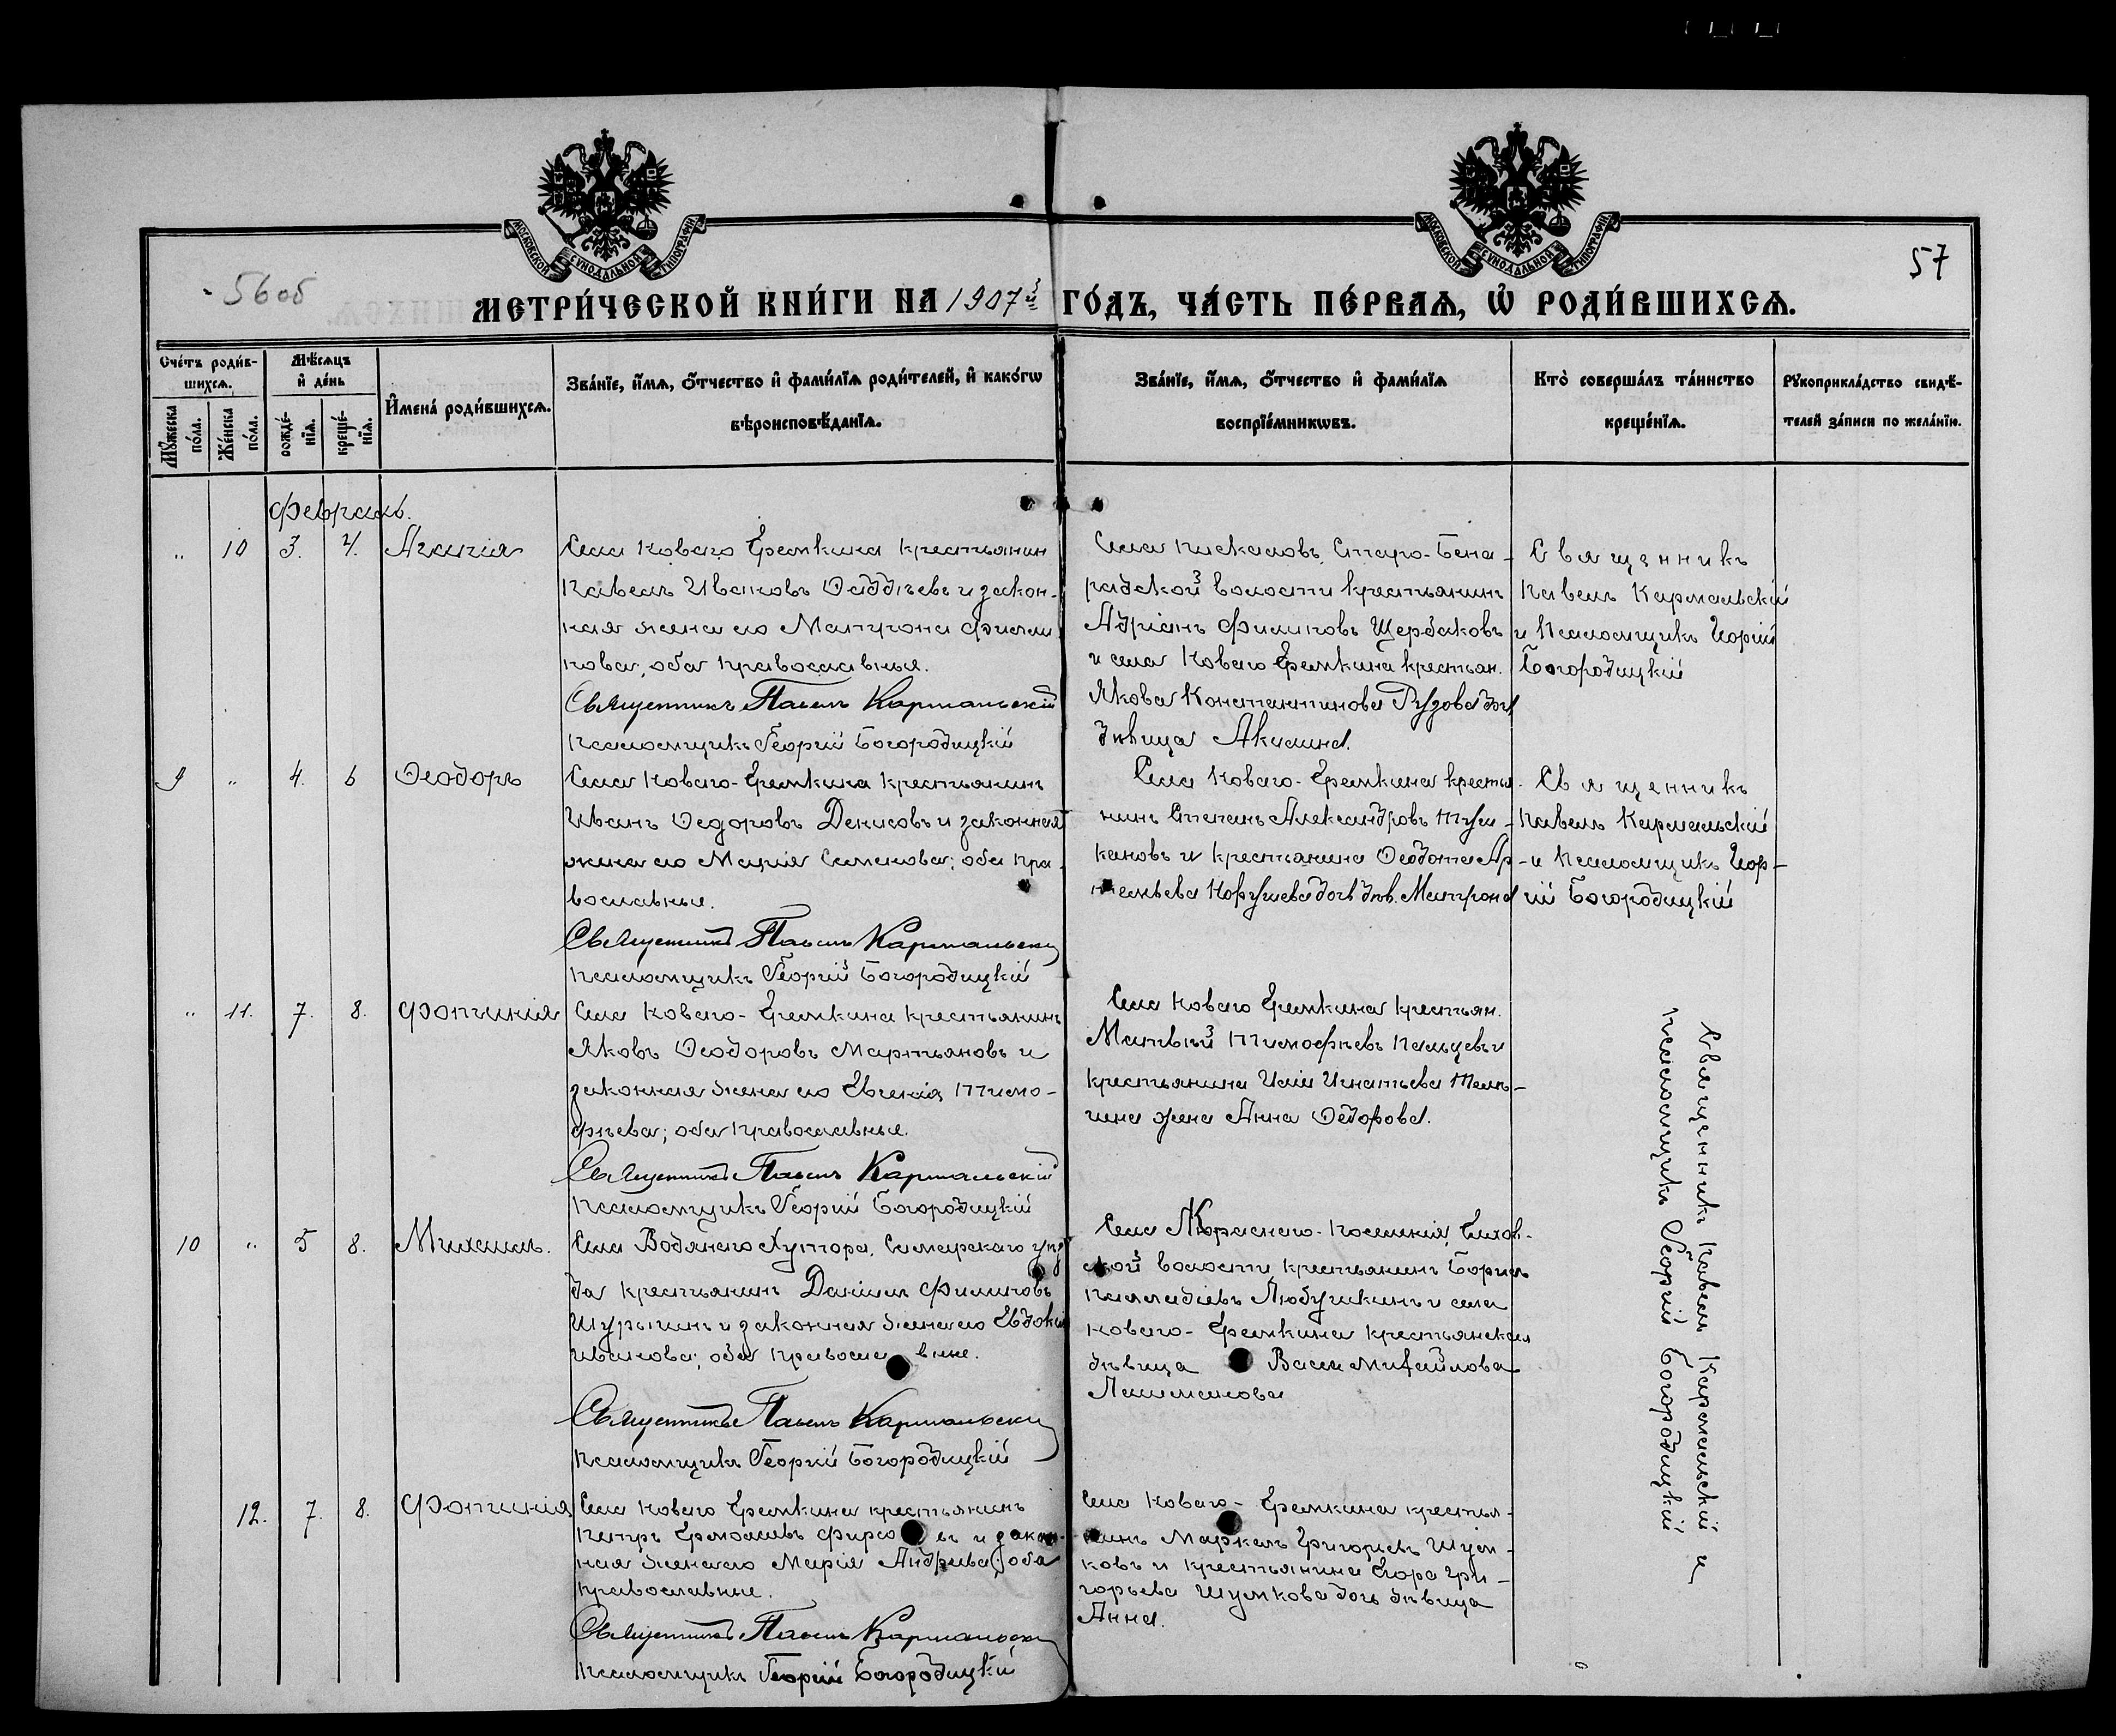 МОСКОВСКОЙ СѴНОДАЛЬНОЙ ТИПОГРАФІИ
МОСКОВСКОЙ СѴНОДАЛЬНОЙ ТИПОГРАФІИ
56 об
57
МЕТРИ́ЧЕСКОЙ КНИ́ГИ НА 1907й ГО́ДЪ, ЧА́СТЬ ПЕ́РВАѦ, Ѡ҆ РОДИ́ВШИХСѦ.
Сче́тъ роди́в-
шихсѧ.
Мꙋ́жеска по́ла.
Же́нска по́ла.
Мѣ́сѧцъ
и҆ де́нь
рожде́-
нїѧ.
креще́-
нїѧ.
И҆мена̀ роди́вшихсѧ.
Зва́нїе, и҆́мѧ, ѻ҆́тчество и҆ фами́лїѧ роди́телей, и҆ како́гѡ
вѣроисповѣ́данїѧ.
Зва́нїе, и҆́мѧ, ѻ҆́тчество и҆ фами́лїѧ
воспрїе́мникѡвъ.
Кто̀ соверша́лъ та́инство
креще́нїѧ.
Рꙋкоприкла́дство свидѣ́-
телей за́писи по жела́нїю.
Февраль.
" 10 3. 4. Агапія
Села Новаго Еремкина крестьянин
Павелъ Ивановъ Ѳаддѣевъ и закон-
ная жена его Матрона Филип
пова; оба православные.
Священникъ Павелъ Кармальскій
Псаломщикъ Георгій Богородицкій
Села Пискаловъ, Старо-Бена-
радской волости крестьянинъ
Адріанъ Филиповъ Щербаковъ
и села Новаго Еремкина крестьян.
Якова Константинова Гузова дочь
дѣвица Акилина.
Священникъ
Павелъ Кармальскій
и Псаломщикъ Георгій
Богородицкій
9 " 4. 6 Ѳеодоръ
Села Новаго-Еремкина крестьянинъ
Иванъ Ѳедоровъ Денисовъ и законная
жена его Марія Семенова; оба пра-
вославные.
Священникъ Павелъ Кармальскій
Псаломщикъ Георгій Богородицкій
Села Новаго-Еремкина крестья-
нинъ Степанъ Александровъ
кановъ и крестьянина Ѳедота Ар-
темьева дочь дѣв. Матрона
Священникъ
Павелъ Кармальскій
и Псаломщикъ Геор-
гій Богородицкій
" 11. 7. 8. Фотинія
Села Новаго-Еремкина крестьянинъ
Яковъ Ѳеодоровъ Мартьяновъ и
законная жена его Евгенія Тимо-
фѣева; оба православные.
Священникъ Павелъ Кармальскій
Псаломщикъ Георгій Богородицкій
Села Новаго Еремкина крестьян.
Матвѣй Тимофѣевъ Пальцевъ и
крестьянина Иліи Игнатьева
жена Анна Ѳедорова.
Священникъ Павелъ Кармальскій и
Псаломщикъ Георгій Богородицкій
10 " 5 8. Михаилъ.
Села Водянаго Хутора, Самарскаго уѣз
да крестьянинъ Даніилъ Филиповъ
Шурыгинъ и законная жена его Евдокія
Иванова; оба православные.
Священникъ Павелъ Кармальскій
Псаломщикъ Георгій Богородицкій
Села Краснаго-Поселенія, Елхов-
ской волости, крестьянинъ Борисъ
Палладіевъ Любушкинъ и села
Новаго-Еремкина крестьянская
дѣвица Васса Михайлова
12. 7. 8. Фотинія
Села Новаго Еремкина крестьянинъ
Петръ Ермолаевъ Фирсовъ и закон-
ная жена его Марія Андреева; оба
православные.
Священникъ Павелъ Кармальскій
Псаломщикъ Георгій Богородицкій
Села Новаго-Еремкина крестья-
нинъ Маркелъ Григорьевъ Шум-
ковъ и крестьянина Егора Гри-
горьева Шумкова дочь дѣвица
Анна.